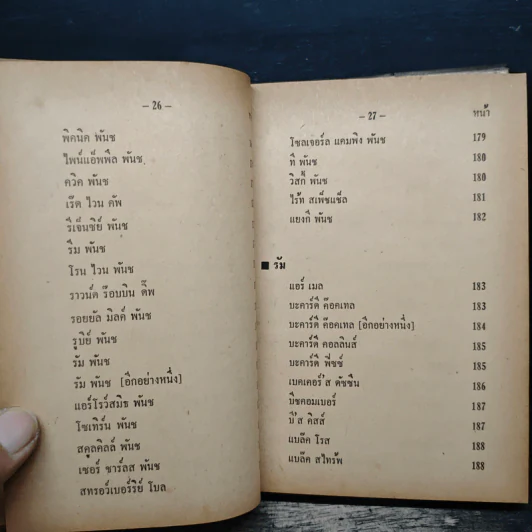 – 26 –
พิคนิค พันช
ไพน์แอ็พพึล พันช
ควิค พันช
เร๊ด ไวน คัพ
รีเจ็นซีย์ พันช
รีม พันช
โรน ไวน พันช
ราวน์ด ร๊อบบิน ดี๊พ
รอยยัล มิลค์ พันช
รูบีย์ พันช
รัม พันช
รัม พันช [อีกอย่างหนึ่ง]
แอร์โรว์สมิธ พันช
โซเทิร์น พันช
สคูลคิลล์ พันช
เซอร์ ชาร์ลส พันช
สทรอว์เบอร์รีย์ โบล
– 27 –
หน้า
โซลเจอร์ล แคมพิง พันช 179
ที พันช 180
วิสกี้ พันช 180
ไร้ท สเพ็ชแช็ล 181
แยงกี พันช 182
■ รัม
แอร์ เมล 183
บะคาร์ดี ค๊อคเทล 183
บะคาร์ดี ค๊อคเทล [อีกอย่างหนึ่ง] 184
บะคาร์ดี คอลลินส์ 185
บะคาร์ดี ฟีซซ์ 185
เบคเคอร์'ส ดัซซิ่น 186
บีชคอมเบอร์ 187
บี'ส คิสส์ 187
แบล๊ค โรส 188
แบล๊ค สไทร้พ 188